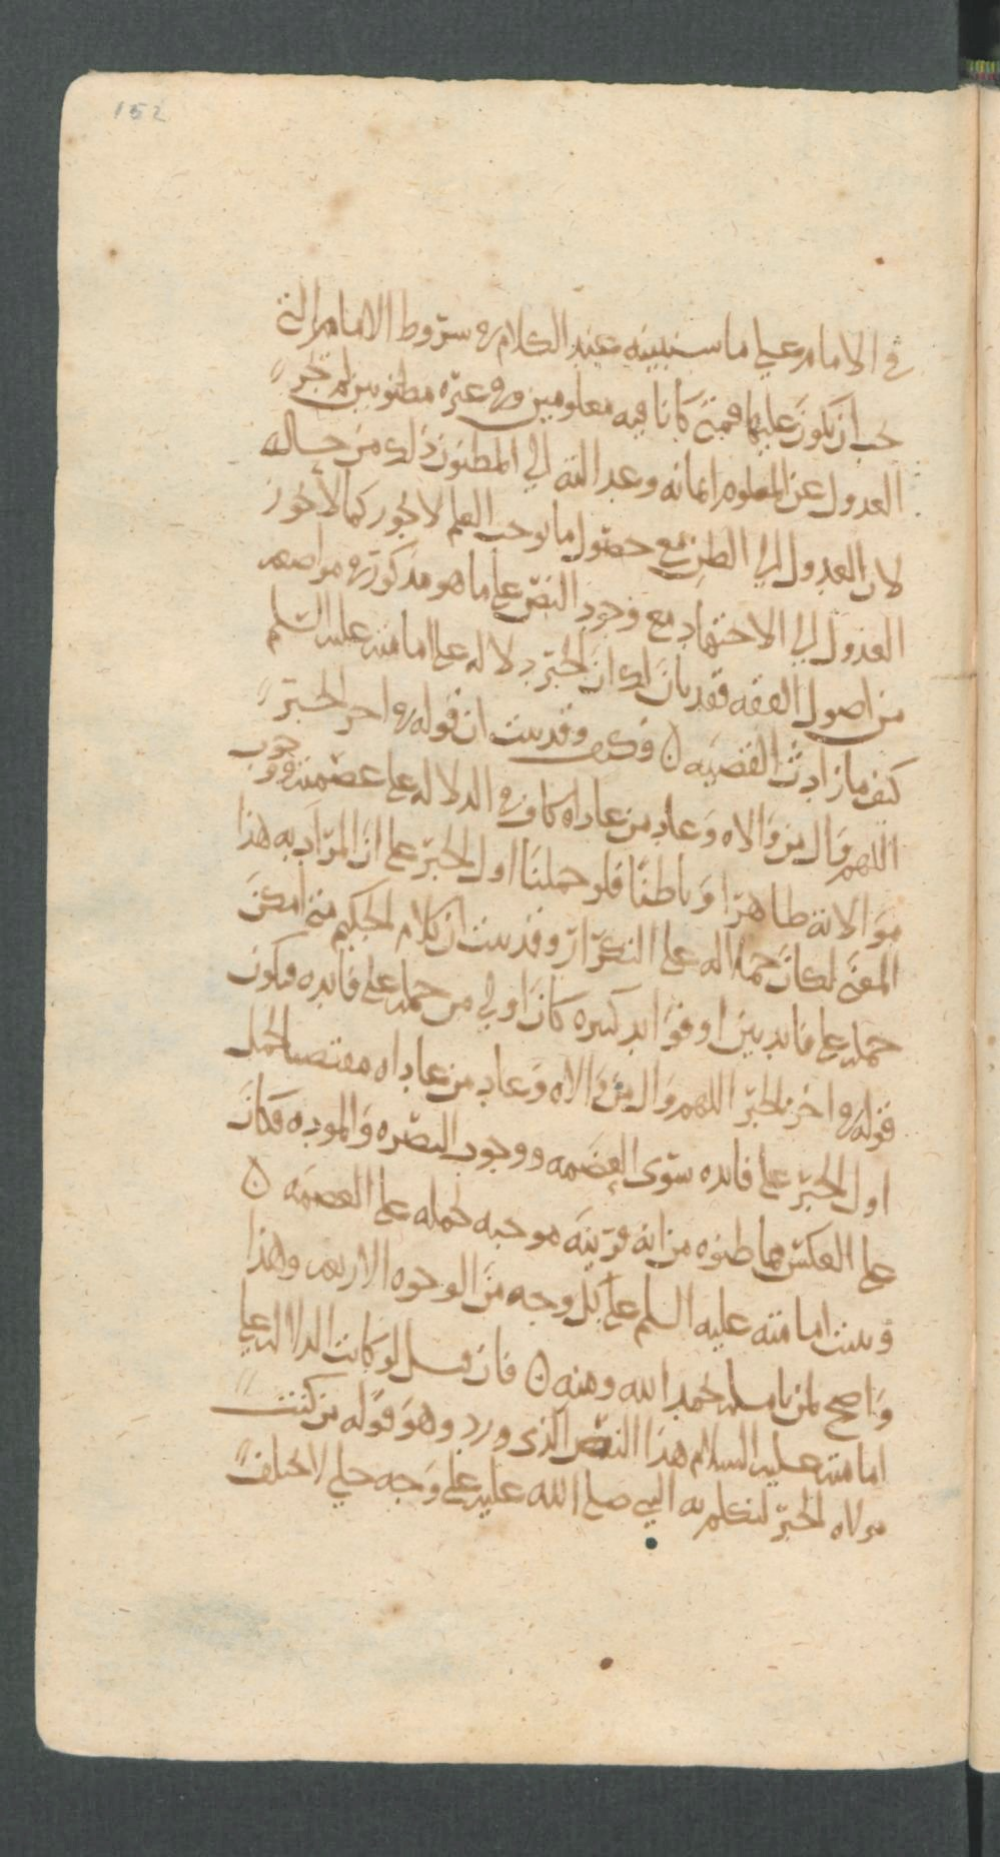 152
في الامام على ما سنبينه عند الكلام في شروط الامام التي
يجب ان يكون عليها فمتى كانا فيه معلومين وفي غيره مظنونين لم يجز
العدول عن المعلوم ايمانه وعدالته الى المظنون ذلك من حاله
لان العدول الى الظن مع حصول ما يوجب العلم لا يجوز كما لا يجوز
العدول الى الاجتهاد مع وجود النص على ما هو مذكور في مواضعه
من اصول الفقه فقد بان لك ان الخبر دلالة على امامته عليه السلم
كيف ما زادت القضيه ن وقد بينت ان قوله في اخر الخبر
اللهم وال من والاه وعاد من عاداه كاف في الدلاله على عصمته ووجوب
موالاته ظاهرا وباطنا فلو حملنا اول الخبر على ان المراد به هذا
المعنى لكان حملا له على التكرار وقد بينت ان كلام الحكيم متى امكن
حمله على فايدتين او فوايد كثيره كان اولى من حمله على فايده فيكون
قوله في اخر الخبر اللهم وال من والاه وعاد من عاداه مقتضيا لحمل
اول الخبر على فايده سوى العصمه ووجوب النصره والموده فكان
على العكس مما ظنوه من انه قرينه موجبه لحمله على العصمه ن
وبينت امامته عليه السلم على كل وجه من الوجوه الاربعه وهذا
واضح لمن تامله بحمد الله ومنه ن فان قيل لو كانت الدلاله على
امامته عليه السلام هذا النص الذي ورد وهو قوله من كنت
مولاه الخبر لتكلم به النبي صلى الله عليه على وجه جلي لا يختلف